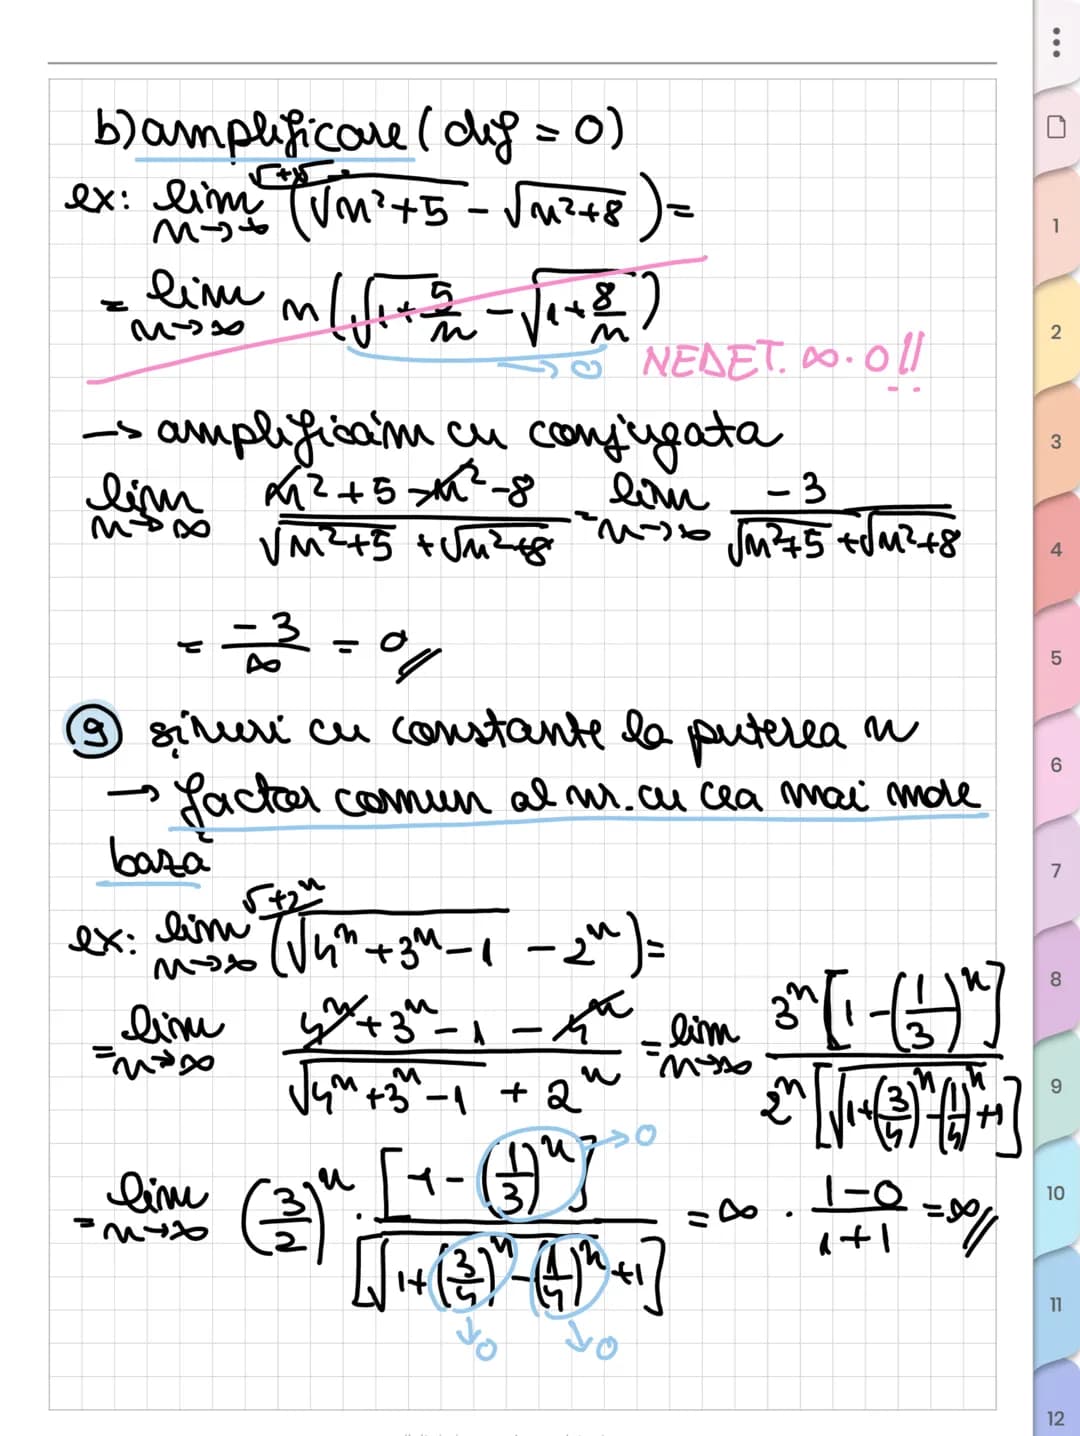 b) amplificare (dif = 0)
√+√
ex: lim n→∞ (√n²+5 - √n²+8) =
= lim n→∞ n(√1+5/n - √1+8/n)
→ 0 NEDET. ∞·0!!
→ amplificăm cu conjugata
lim n→∞ n²+5-n²-8 / √n²+5 + √n²+8 = lim n→∞ -3 / √n²+5 + √n²+8
= -3/∞ = 0
9 șiruri cu constante la puterea n
→ factor comun al nr. cu cea mai mare
bază
√+2ⁿ
ex: lim n→∞ (√4ⁿ+3ⁿ-1 - 2ⁿ) =
= lim n→∞ 4ⁿ+3ⁿ-1-4ⁿ / √4ⁿ+3ⁿ-1 + 2ⁿ = lim n→∞ 3ⁿ[1-(1/3)ⁿ] / 2ⁿ[√1+(3/4)ⁿ-(1/4)ⁿ+1]
= lim n→∞ (3/2)ⁿ · [1-(1/3)ⁿ] / [√1+(3/4)ⁿ-(1/4)ⁿ+1] = ∞ · 1-0/1+1 = ∞
→0
↓0 ↓0
1
2
3
4
5
6
7
8
9
10
11
12